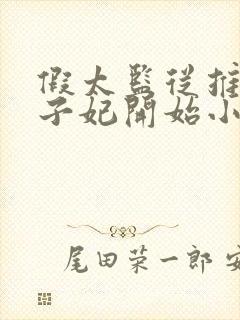 假太監從推
子妃開始小
尾田荣一郎 安